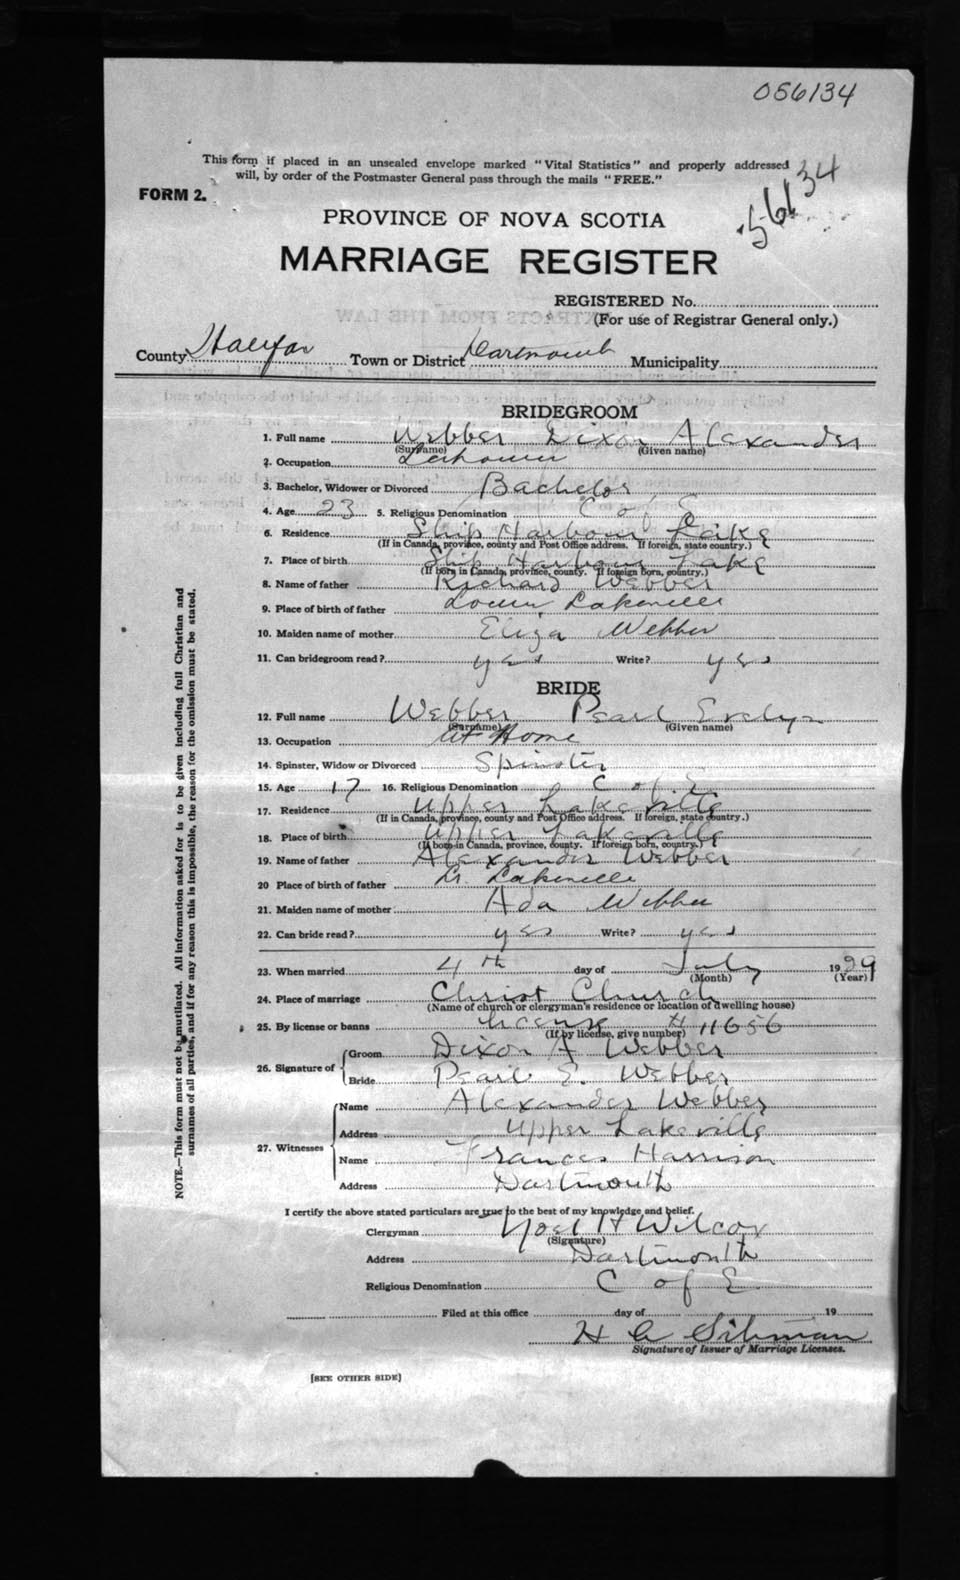 056134
This form if placed in an unsealed envelope marked "Vital Statistics" and properly addressed
will, by order of the Postmaster General pass through the mails "FREE."
FORM 2.
56134
PROVINCE OF NOVA SCOTIA
MARRIAGE REGISTER
REGISTERED No.
(For use of Registrar General only.)
County Halifax Town or District Dartmouth Municipality
BRIDEGROOM
1. Full name Webber Dixon Alexander
(Surname) (Given name)
2. Occupation
3. Bachelor, Widower or Divorced Bachelor
4. Age 23 5. Religious Denomination C of E
6. Residence Ship Harbour Lake
(If in Canada, province, county and Post Office address. If foreign, state country.)
7. Place of birth Ship Harbour Lake
(If born in Canada, province, county. If foreign born, country.)
8. Name of father Richard Webber
9. Place of birth of father Lower Lakeville
10. Maiden name of mother Eliza Webber
11. Can bridegroom read? yes Write? yes
BRIDE
12. Full name Webber Pearl Evelyn
(Surname) (Given name)
13. Occupation At Home
14. Spinster, Widow or Divorced Spinster
15. Age 17 16. Religious Denomination C of E
17. Residence Upper Lakeville
(If in Canada, province, county and Post Office address. If foreign, state country.)
18. Place of birth Upper Lakeville
(If born in Canada, province, county. If foreign born, country.)
19. Name of father Alexander Webber
20 Place of birth of father Lr. Lakeville
21. Maiden name of mother Ada Webber
22. Can bride read? yes Write? yes
23. When married 4th day of July 1929
(Month) (Year)
24. Place of marriage Christ Church
(Name of church or clergyman's residence or location of dwelling house)
25. By license or banns license # 11656
(If by license, give number)
26. Signature of Groom Dixon A Webber
Bride Pearl E. Webber
27. Witnesses Name Alexander Webber
Address Upper Lakeville
Name Frances Harrison
Address Dartmouth
I certify the above stated particulars are true to the best of my knowledge and belief.
Clergyman Noel H Wilcox
(Signature)
Address Dartmouth
Religious Denomination C of E
Filed at this office day of 19
H C
Signature of Issuer of Marriage Licenses.
[SEE OTHER SIDE]
NOTE.—This form must not be mutilated. All information asked for is to be given including full Christian and
surnames of all parties, and if for any reason this is impossible, the reason for the omission must be stated.